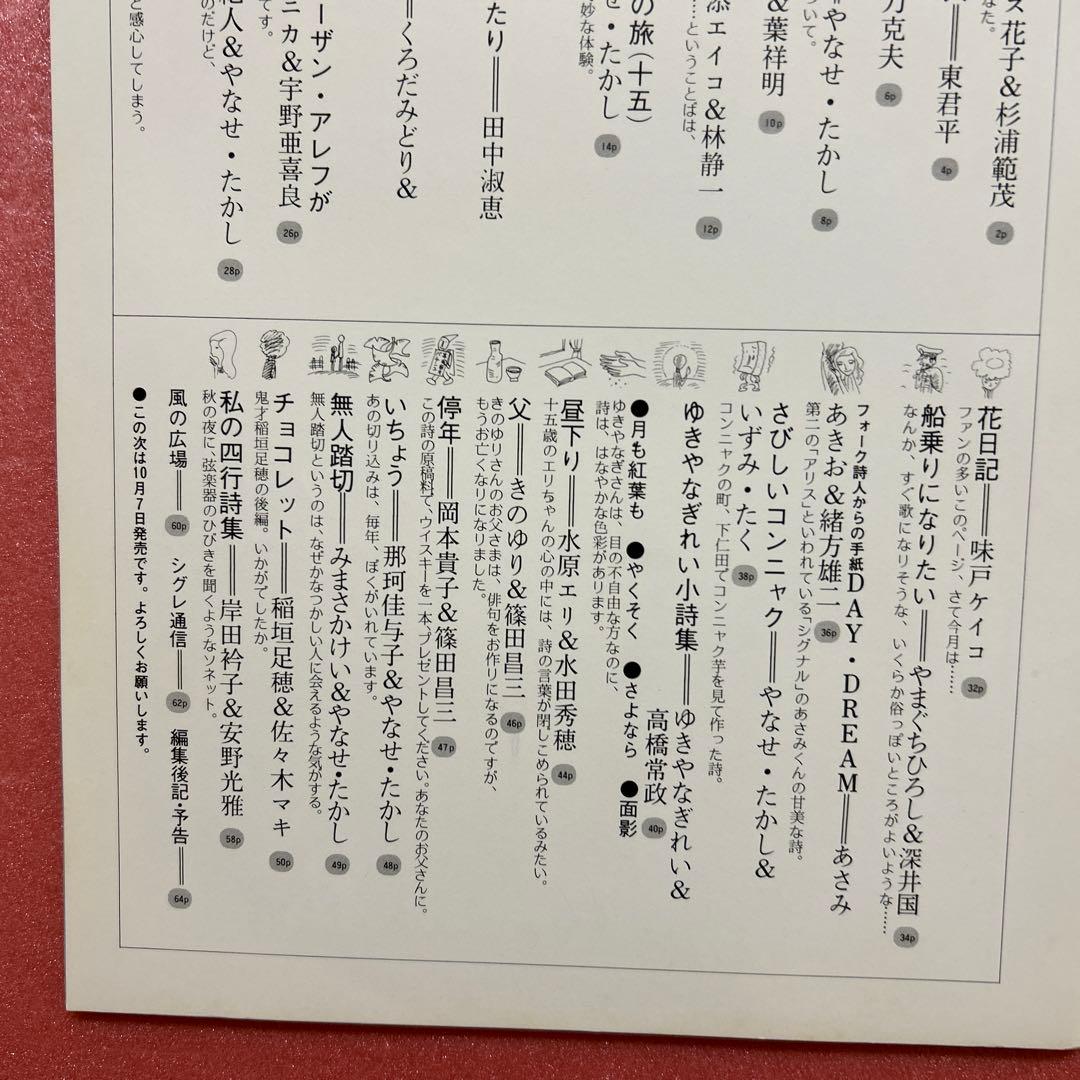 ス花子&杉浦範茂
2p
なた。
東君平
4p
克夫
6p
やなせ・たかし
8p
ついて。
&葉祥明
10p
エイコ&林静一
12p
……ということばは、
の旅(十五)
せ・たかし
14p
妙な体験。
たり══田中淑恵
══くろだみどり&
ーザン・アレフが
ニカ&宇野亜喜良
26p
です。
人&やなせ・たかし
28p
のだけど、
と感心してしまう。
花日記══味戸ケイコ
32p
ファンの多いこのページ、さて今月は……
船乗りになりたい══やまぐちひろし&深井国
34p
なんか、すぐ歌になりそうな、いくらか俗っぽいところがよいような……
フォーク詩人からの手紙DAY・DREAM══あさみ
あきお&緒方雄二
36p
第二の「アリス」といわれている「シグナル」のあさみくんの甘美な詩。
さびしいコンニャク══やなせ・たかし&
いずみ・たく
38p
コンニャクの町、下仁田でコンニャク芋を見て作った詩。
ゆきやなぎれい小詩集══ゆきやなぎれい&
高橋常政
40p
●月も紅葉も ●やくそく ●さよなら ●面影
ゆきやなぎさんは、目の不自由な方なのに、
詩は、はなやかな色彩があります。
昼下り══水原エリ&水田秀穂
44p
十五歳のエリちゃんの心の中には、詩の言葉が閉じこめられているみたい。
父══きのゆり&篠田昌三
46p
きのゆりさんのお父さまは、俳句をお作りになるのですが、
もうお亡くなりになりました。
停年══岡本貴子&篠田昌三
47p
この詩の原稿料で、ウイスキーを一本、プレゼントしてください。あなたのお父さんに。
いちょう══那珂佳与子&やなせ・たかし
48p
あの切り込みは、毎年、ぼくがいれています。
無人踏切══みまさかけい&やなせ・たかし
49p
無人踏切というのは、なぜかなつかしい人に会えるような気がする。
チョコレット══稲垣足穂&佐々木マキ
50p
鬼才稲垣足穂の後編。いかがでしたか。
私の四行詩集══岸田衿子&安野光雅
58p
秋の夜に、弦楽器のひびきを聞くようなソネット。
風の広場══
60p
シグレ通信══
62p
編集後記・予告══
64p
●この次は10月7日発売です。よろしくお願いします。